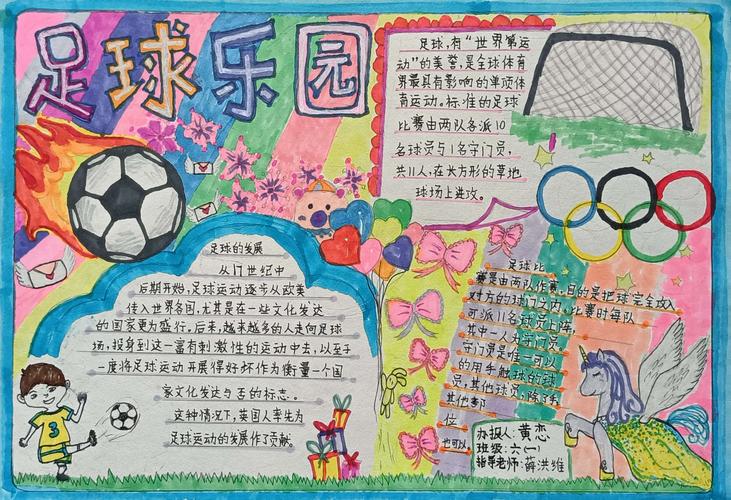 足球乐园
足球,有“世界第运
动”的美誉,是全球体育
界最具有影响的单项体
育运动。标准的足球
比赛由两队各派10
名球员与1名守门员,
共11人,在长方形的草地
球场上进攻。
足球的发展
从17世纪中
后期开始,足球运动逐步从欧美
传入世界各国,尤其是在一些文化发达
的国家更为盛行。后来,越来越多的人走向足球
场,投身到这一富有刺激性的运动中去,以至于
一度将足球运动开展得好坏作为衡量一个国
家文化发达与否的标志。
这种情况下,英国人率先为
足球运动的发展作了贡献
足球比
赛是由两队作赛,目的是把球完全攻入
对方的球门之内,比赛时每队
可派11名球员上阵,
其中一人为守门员,
守门员是唯一可以
的用手触球的球
员,其他球员,除了手
其他部
位
也可以
3
办报人:黄恋
班级:六(一)
指导老师:薛洪维